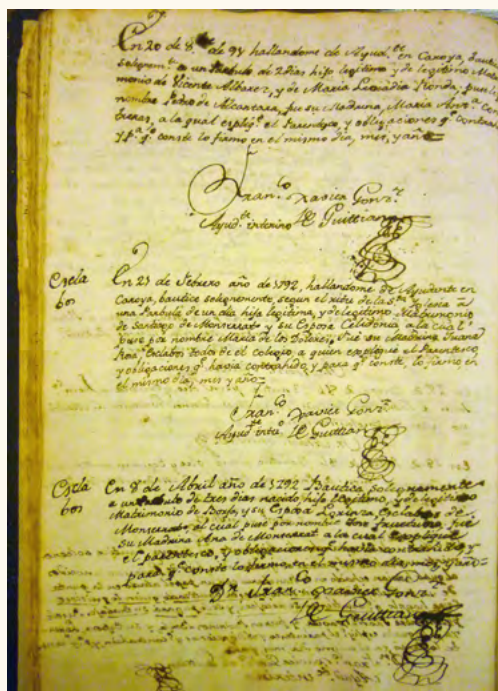 En 20 de 8.bre de 91 hallandome de Ayud.te en Caroya, bautice
solemnem.te a un Parbulo de 2 dias hijo legitimo, y de legitimo Matri
monio de Vicente Albarez, y de Maria Leocadia Ronda, puse le p.r
nombre Pedro de Alcantara, fue su Madrina, Maria Ant.a Con
treras, a la qual expliq.e el Parentesco, y obligaciones q.e contrae
y p.a q.e conste lo firmo en el mismo dia, mes, y año
Fran.co Xavier Gonz.z
Ayud.te interino De Guittian
Escla
bos
En 21 de Febrero año de 1792, hallandome de Ayudente en
Caroya, bautice solegnemente, segun el rito de la S.ta Iglesia a
una Parbula de un dia hija legitima, y de legitimo Matrimonio
de Santiago de Monserrato y su Esposa Celidonia a la cual
puse por nombre Maria de los Dolores. Fue su Madrina Juana
Esclabos todos de el colegio, a quien expliqué el Parentesco
y obligaciones q.e havia contrahido, y para q.e conste, lo firmo en
el mismo dia, mes y año
Fran.co Xavier Gonz.z
Ayud.te inte.o De Guittian
Escla
bos
En 8 de Abril año de 1792 Bautice solegnemente
a un Parbulo de tres dias nacido, hijo legitimo, y de legitimo
Matrimonio de y su Esposa Lorenza, Esclabos de
Monserrate, al cual puse por nombre fue
su Madrina Ana de Monserrat a la cual expliqué
el parentesco, y obligaciones q.e havia contrahido, y
para q.e conste lo firmo, en el mismo dia, mes, y año
Fran.co Xavier Gonz.z
De Guittian